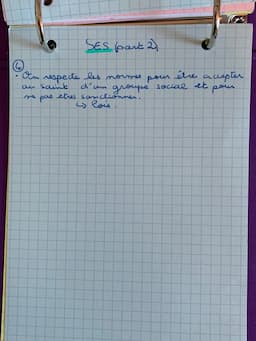 SES (part 2)
4
• On respecte les normes pour être accepter
au saint d'un groupe social et pour
ne pas etres sanctionner.
↳ lois